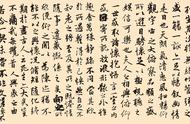 盛一觴一詠亦足以暢敘幽情
是日也天朗氣清惠風和暢仰
觀宇宙之大俯察品類之盛
所以遊目騁懷足以極視聽之
娛信可樂也夫人之相與俯仰
一世或取諸懷抱悟言一室之內
或因寄所託放浪形骸之外雖
趣舍萬殊靜躁不同當其欣
於所遇暫得於己快然自足不
知老之將至及其所之既惓情
隨事遷感慨係之矣向之所
欣俛仰之間以為陳迹猶不
能不以之興懷況脩短隨化終
期於盡古人云死生亦大矣豈